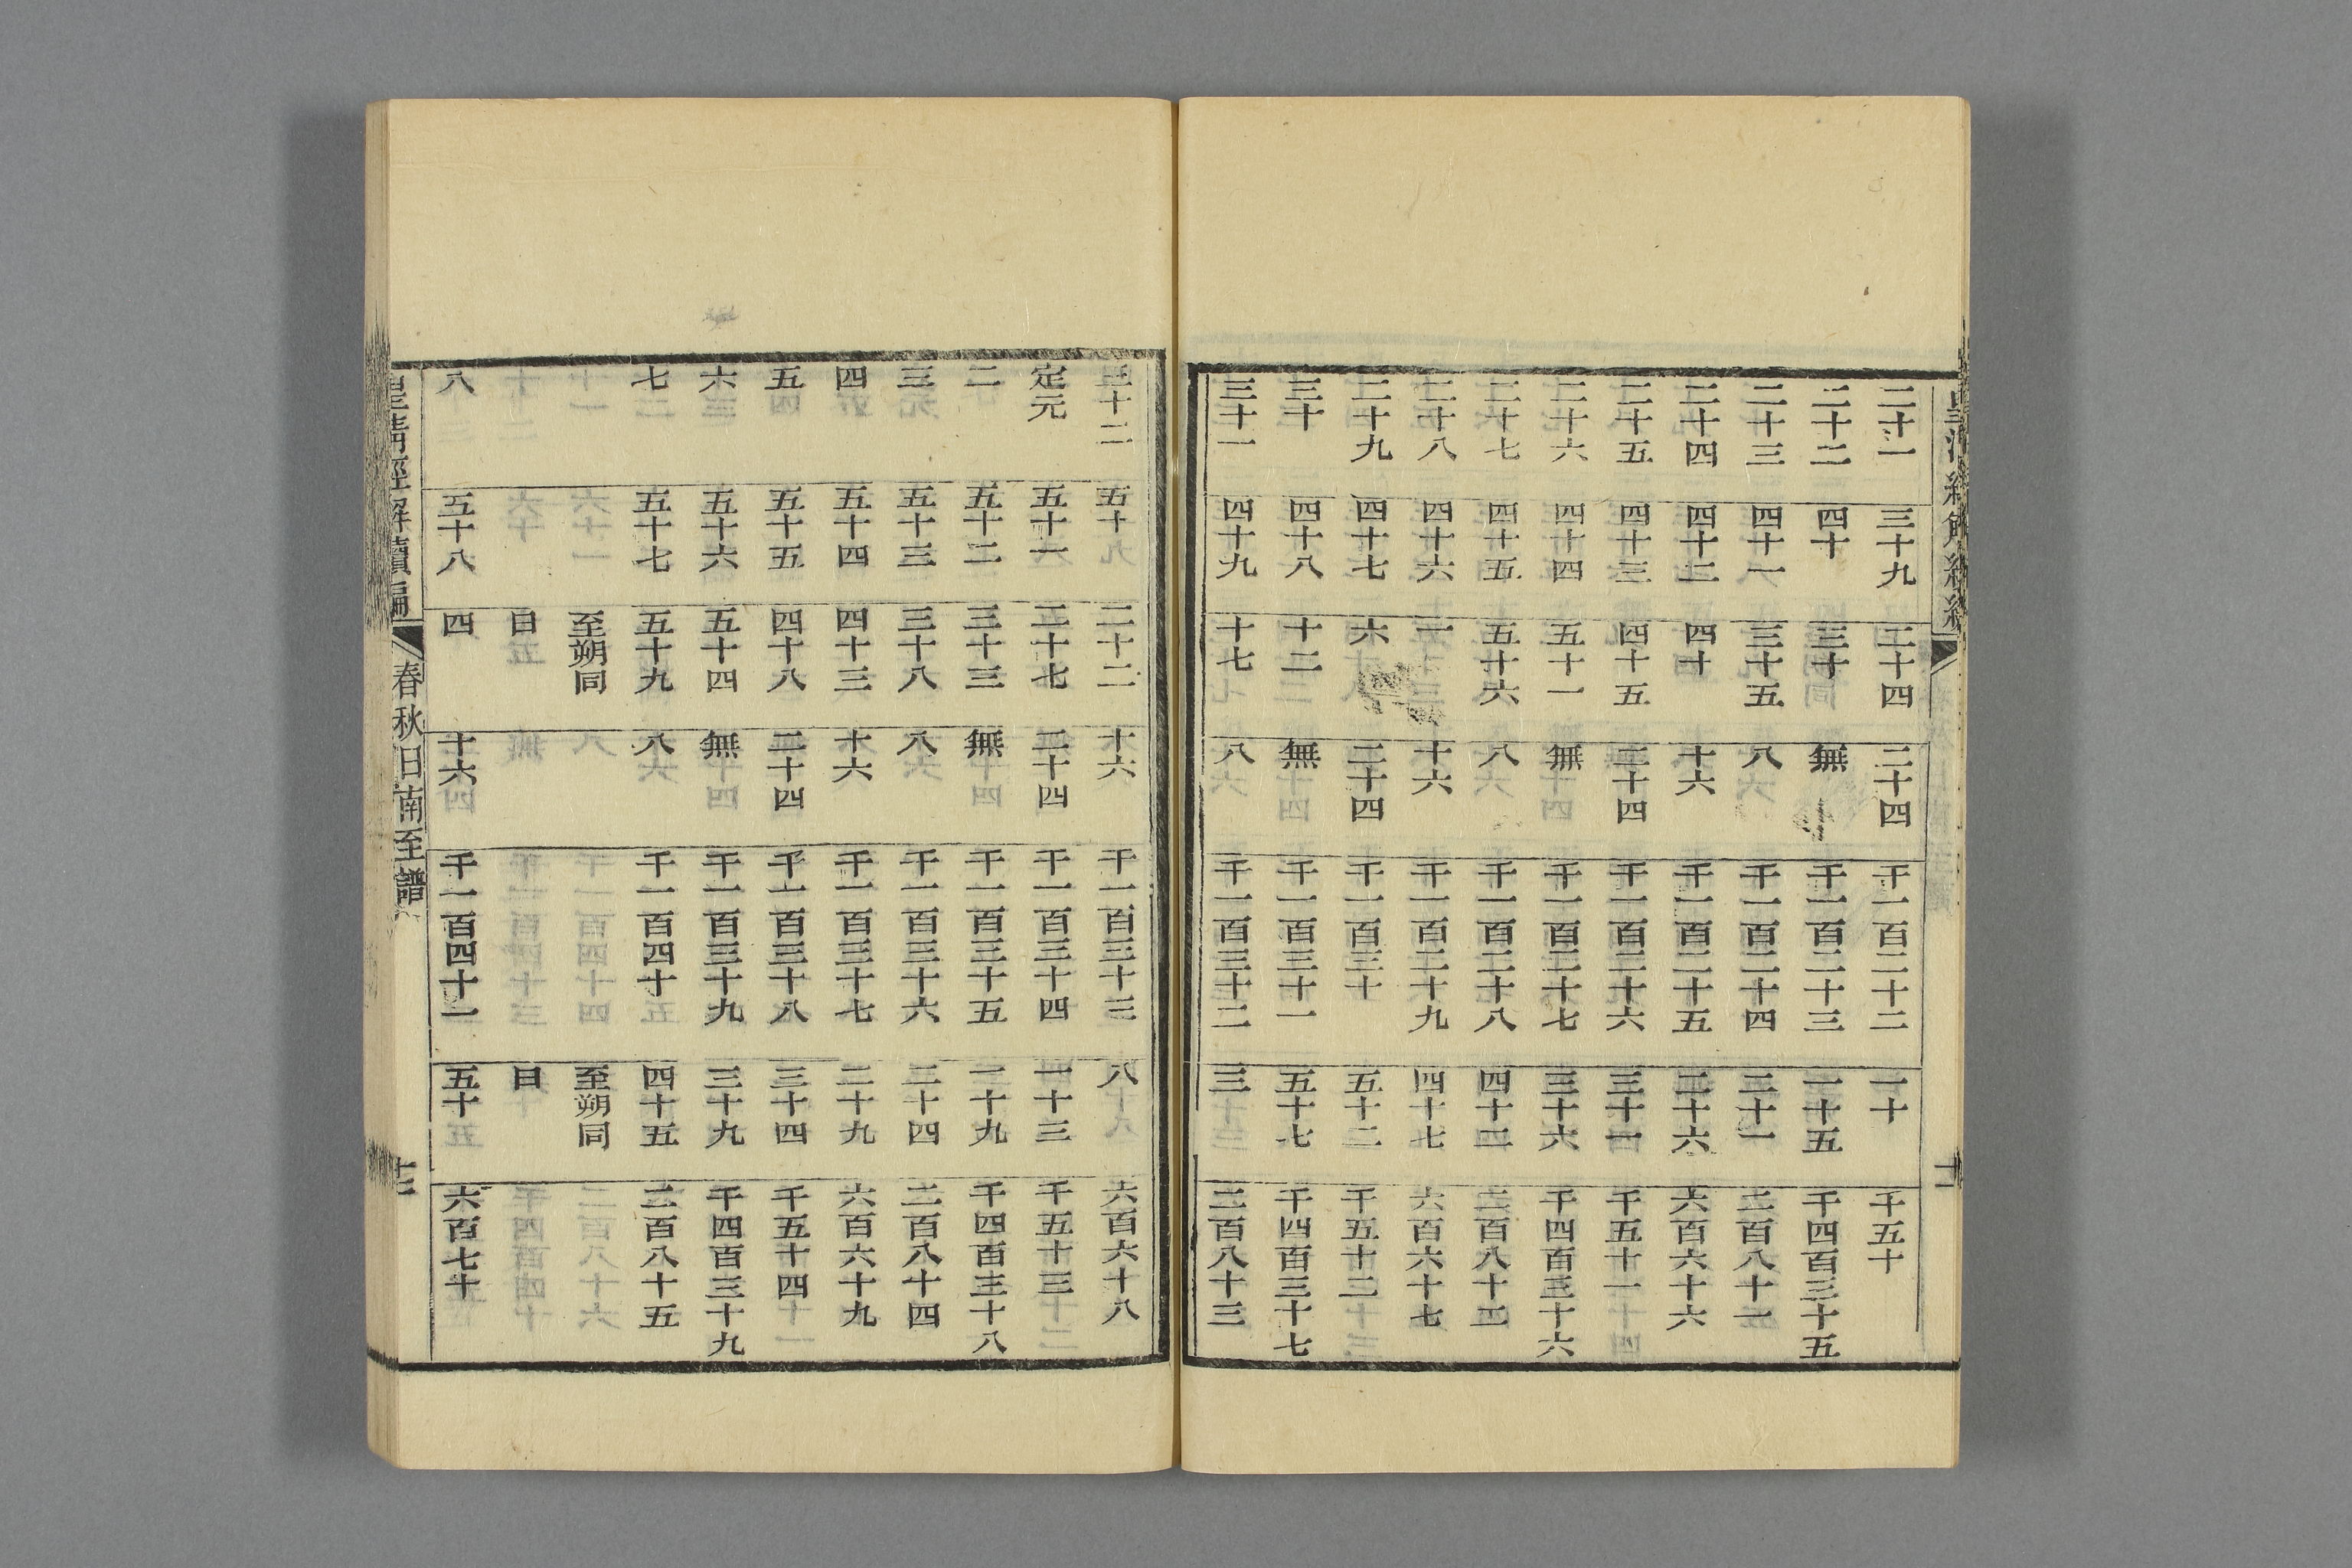 皇清經解續編
二十一 三十九 二十四 二十四 千一百二十二 一十 千五十
二十二 四十 三十 無 千一百二十三 一十五 千四百三十五
二十三 四十一 三十五 八 千一百二十四 二十一 二百八十一
二十四 四十二 四十 十六 千一百二十五 二十六 六百六十六
二十五 四十三 四十五 二十四 千一百二十六 三十一 千五十一
二十六 四十四 五十一 無 千一百二十七 三十六 千四百三十六
二十七 四十五 五十六 八 千一百二十八 四十二 二百八十二
二十八 四十六 一 十六 千一百二十九 四十七 六百六十七
二十九 四十七 六 二十四 千一百三十 五十二 千五十二
三十 四十八 十二 無 千一百三十一 五十七 千四百三十七
三十一 四十九 十七 八 千一百三十二 三 二百八十三
三十二 五十 二十二 十六 千一百三十三 八 六百六十八
定元 五十一 二十七 二十四 千一百三十四 一十三 千五十三
二 五十二 三十三 無 千一百三十五 一十九 千四百三十八
三 五十三 三十八 八 千一百三十六 二十四 二百八十四
四 五十四 四十三 十六 千一百三十七 二十九 六百六十九
五 五十五 四十八 二十四 千一百三十八 三十四 千五十四
六 五十六 五十四 無 千一百三十九 三十九 千四百三十九
七 五十七 五十九 八 千一百四十 四十五 二百八十五
至朔同 至朔同
日 日
八 五十八 四 十六 千一百四十一 五十 六百七十
皇清經解續編 春秋日南至譜 十二